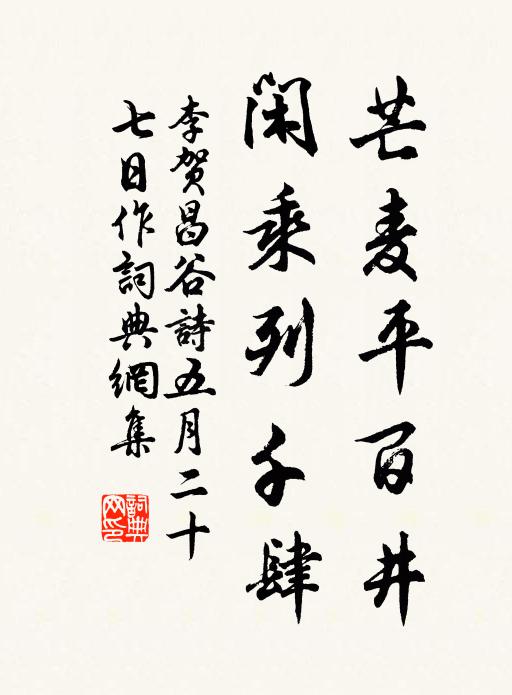 芒麦平百井
闲乘列千肆
李贺昌谷詩五月二十
七日作詞典網集
詞典
网印